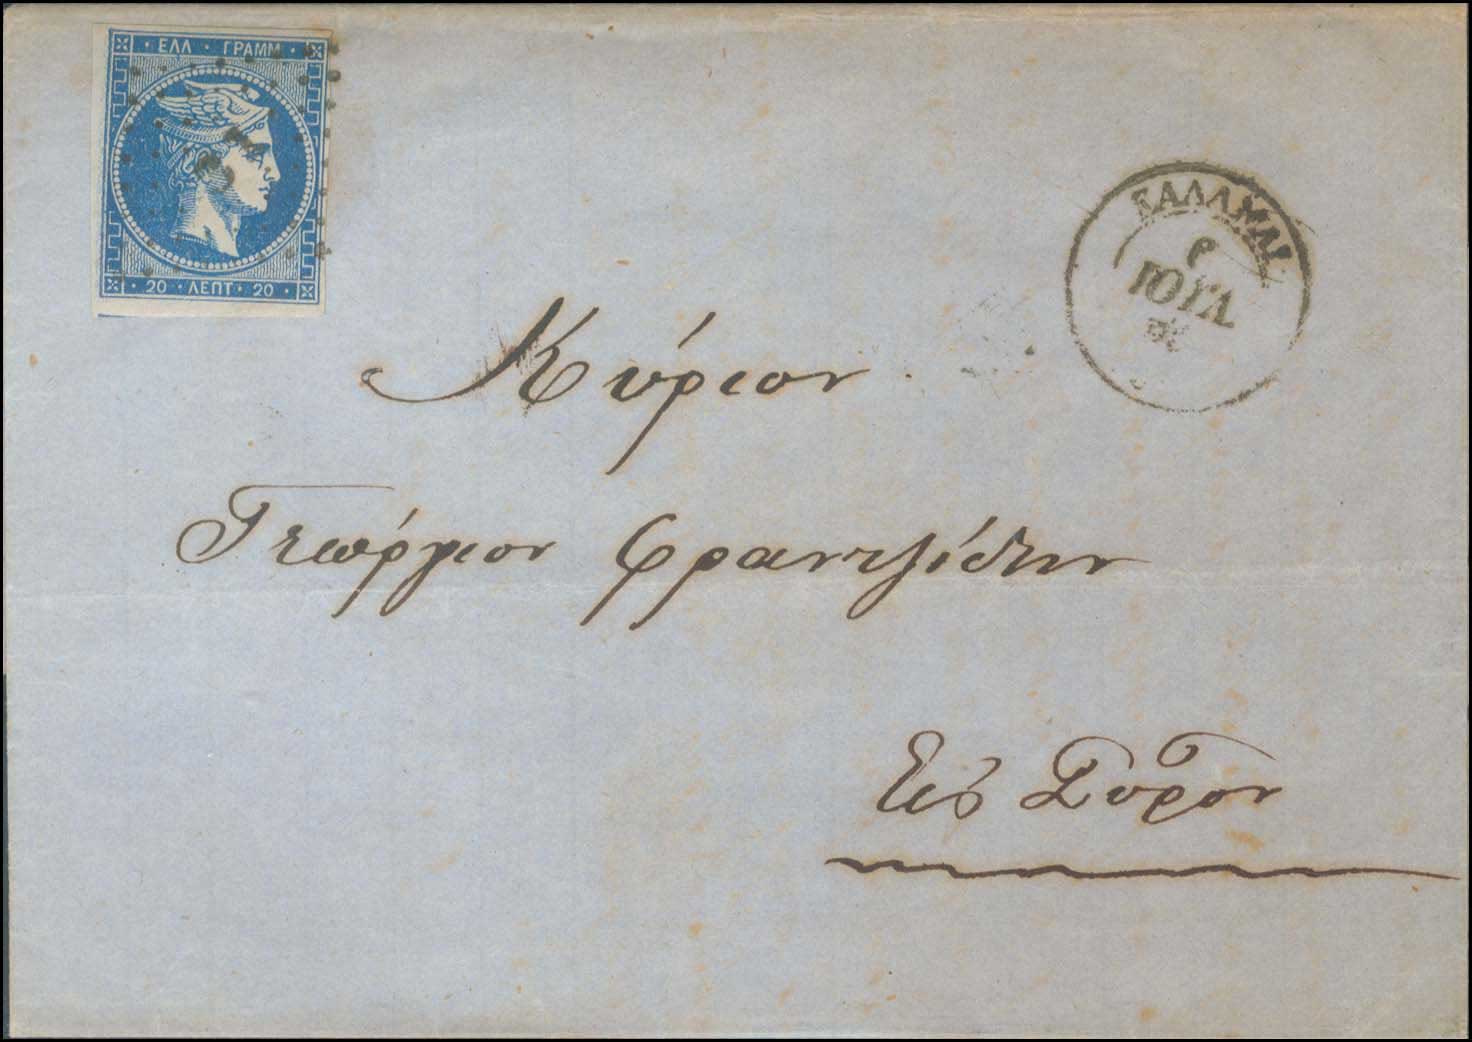 ΕΛΛ · ΓΡΑΜΜ
20 · ΛΕΠΤ · 20
ΚΑΛΑΜΑΙ
ΙΟΥΛ
Κύριον
Γεώργιον Φραντζίδην
Εἰς Σῦρον